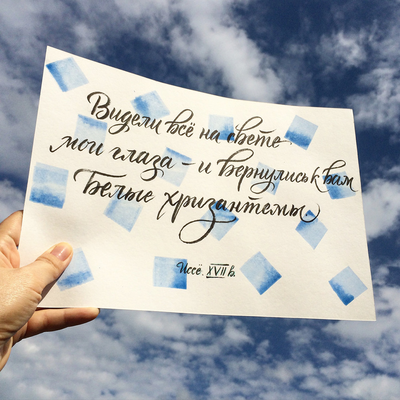 Видели всё на свете
мои глаза – и вернулись к вам
Белые хризантемы
Иссё. XVII в.